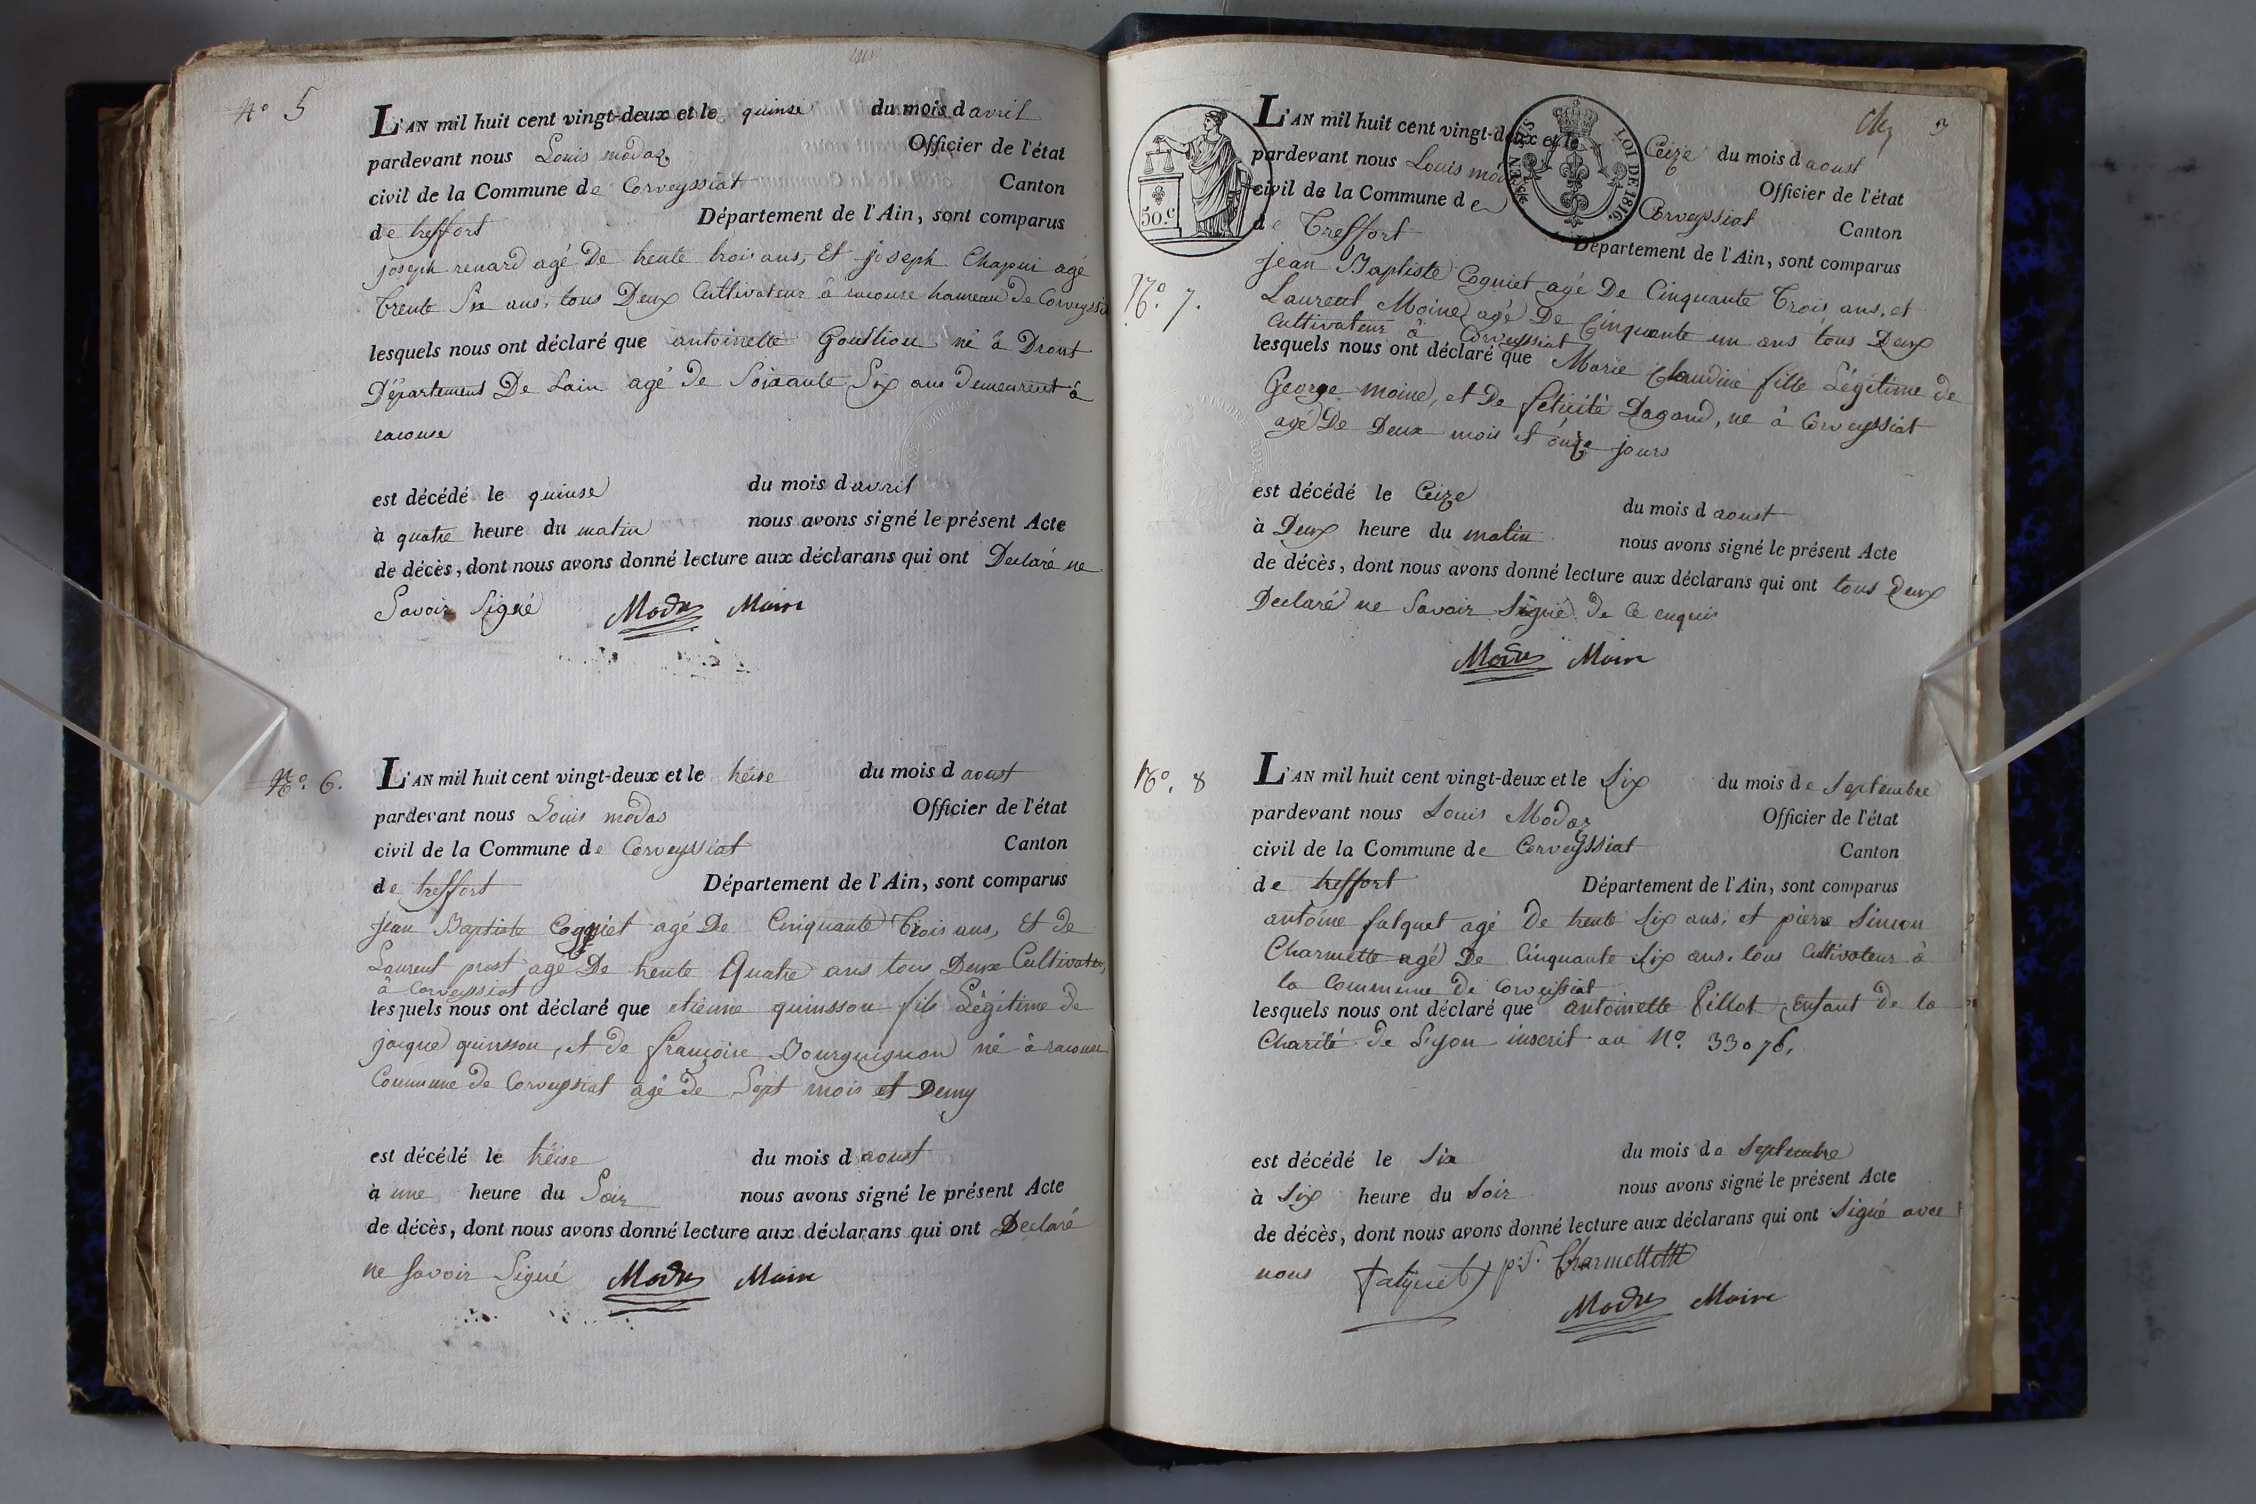 N.o 5
L'AN mil huit cent vingt-deux et le quinse du mois d avril
pardevant nous Louis modas Officier de l'état
civil de la Commune de Corveyssiat Canton
de treffort Département de l'Ain, sont comparus
joseph renard agé De trente trois ans, Et joseph Chapui agé
trente Six ans, tous Deux Cultivateur à racouse hameau de Corveyssia
lesquels nous ont déclaré que antoinette né à Dront
Département De Lain agé de Soixante Six ans demeurent à
racouse
est décédé le quinse du mois d avril
à quatre heure du matin nous avons signé le présent Acte
de décès, dont nous avons donné lecture aux déclarans qui ont Declaré ne
Savoir Signé Modas Maire
N.o 6.
L'AN mil huit cent vingt-deux et le tréise du mois d aoust
pardevant nous Louis modas Officier de l'état
civil de la Commune de Corveyssiat Canton
de treffort Département de l'Ain, sont comparus
jean Baptiste Cogniet agé De Cinquante Trois ans, Et de
Laurent prost agé De trente Quatre ans tous Deux Cultivateur
à Corveyssiat
lesquels nous ont déclaré que etienne quinsson fils Légitime de
jacque quinsson, et de françoise Bourguignon né à racouse
Commune de Corveyssiat agé de Sept mois et Demy
est décédé le tréise du mois d aoust
à une heure du Soir nous avons signé le présent Acte
de décès, dont nous avons donné lecture aux déclarans qui ont Declaré
ne Savoir Signé Modas Maire
3
50.c
LOI DE 1816.
L'AN mil huit cent vingt-deux et le Ceize du mois d aoust
pardevant nous Louis mod Officier de l'état
civil de la Commune de Corveyssiat Canton
de Treffort Département de l'Ain, sont comparus
N.o 7.
jean Baptiste Cogniet agé De Cinquante Trois ans, et
Laurent Moine agé De Cinquante un ans tous Deux
Cultivateur à Corveyssiat
lesquels nous ont déclaré que Marie Claudine fille Légitime de
George moine, et De felicité Dagand, né à Corveyssiat
agé De Deux mois et onze jours
est décédé le Ceize du mois d aoust
à Deux heure du matin nous avons signé le présent Acte
de décès, dont nous avons donné lecture aux déclarans qui ont tous deux
Declaré ne Savoir Signé de Ce enquis
Modas Maire
N.o 8
L'AN mil huit cent vingt-deux et le Six du mois de Septembre
pardevant nous Louis Modas Officier de l'état
civil de la Commune de Corveyssiat Canton
de treffort Département de l'Ain, sont comparus
antoine falquet agé de trente Six ans, et pierre Simon
Charmette agé De Cinquante Six ans, tous Cultivateur à
la Commune de Corveissiat
lesquels nous ont déclaré que antoinette Pillot Enfant de la
Charité de Lyon inscrit au N.o 33076,
est décédé le Six du mois de Septembre
à Six heure du Soir nous avons signé le présent Acte
de décès, dont nous avons donné lecture aux déclarans qui ont Signé avec
nous falquet p.S. Charmette
Modas Maire